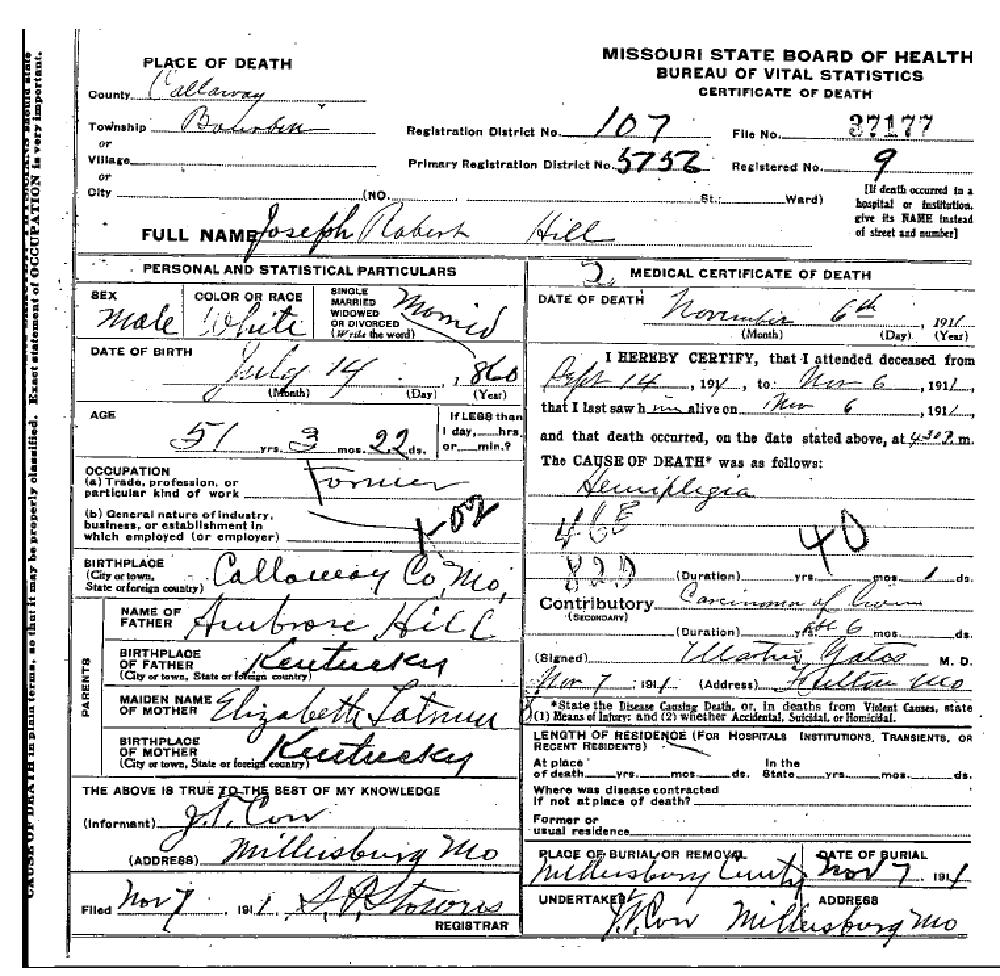 MISSOURI STATE BOARD OF HEALTH
BUREAU OF VITAL STATISTICS
CERTIFICATE OF DEATH
PLACE OF DEATH
County Callaway
Township Bourbon
or
Village
or
City (NO. St.; Ward)
Registration District No. 107 File No. 37177
Primary Registration District No. 5752 Registered No. 9
[If death occurred in a
hospital or institution,
give its NAME instead
of street and number]
FULL NAME Joseph Robert Hill
PERSONAL AND STATISTICAL PARTICULARS
SEX Male
COLOR OR RACE White
SINGLE
MARRIED
WIDOWED
OR DIVORCED
(Write the word)
Married
DATE OF BIRTH
July 14, 1860
(Month) (Day) (Year)
AGE
51 yrs. 3 mos. 22 ds.
If LESS than
1 day, hrs.
or min.?
OCCUPATION
(a) Trade, profession, or
particular kind of work Farmer
(b) General nature of industry,
business, or establishment in
which employed (or employer)
1-02
BIRTHPLACE
(City or town,
State or foreign country)
Callaway Co, Mo,
PARENTS
NAME OF
FATHER Ambrose Hill
BIRTHPLACE
OF FATHER Kentucky
(City or town, State or foreign country)
MAIDEN NAME
OF MOTHER Elizabeth
BIRTHPLACE
OF MOTHER Kentucky
(City or town, State or foreign country)
THE ABOVE IS TRUE TO THE BEST OF MY KNOWLEDGE
(Informant) J.T. Corr
(ADDRESS) Millersburg Mo
Filed Nov 7, 1911,
REGISTRAR
MEDICAL CERTIFICATE OF DEATH
DATE OF DEATH
November 6th, 1911
(Month) (Day) (Year)
I HEREBY CERTIFY, that I attended deceased from
Sept 14, 1911, to Nov 6, 1911,
that I last saw him alive on Nov 6, 1911,
and that death occurred, on the date stated above, at m.
The CAUSE OF DEATH* was as follows:
Hemiplegia
40
(Duration) yrs. mos. 1 ds.
Contributory Carcinoma of
(SECONDARY)
(Duration) yrs. 6 mos. ds.
(Signed) Martin Yates M. D.
Nov 7, 1911 (Address) Fulton Mo
*State the Disease Causing Death, or, in deaths from Violent Causes, state
(1) Means of Injury; and (2) whether Accidental, Suicidal, or Homicidal.
LENGTH OF RESIDENCE (FOR HOSPITALS INSTITUTIONS, TRANSIENTS, OR
RECENT RESIDENTS)
At place of death yrs. mos. ds. In the State yrs. mos. ds.
Where was disease contracted
if not at place of death?
Former or
usual residence
PLACE OF BURIAL OR REMOVAL DATE OF BURIAL
Millersburg Nov 7 1911
UNDERTAKER ADDRESS
J.T. Corr Millersburg Mo
CAUSE OF DEATH in plain terms, so that it may be properly classified. Exact statement of OCCUPATION is very important.